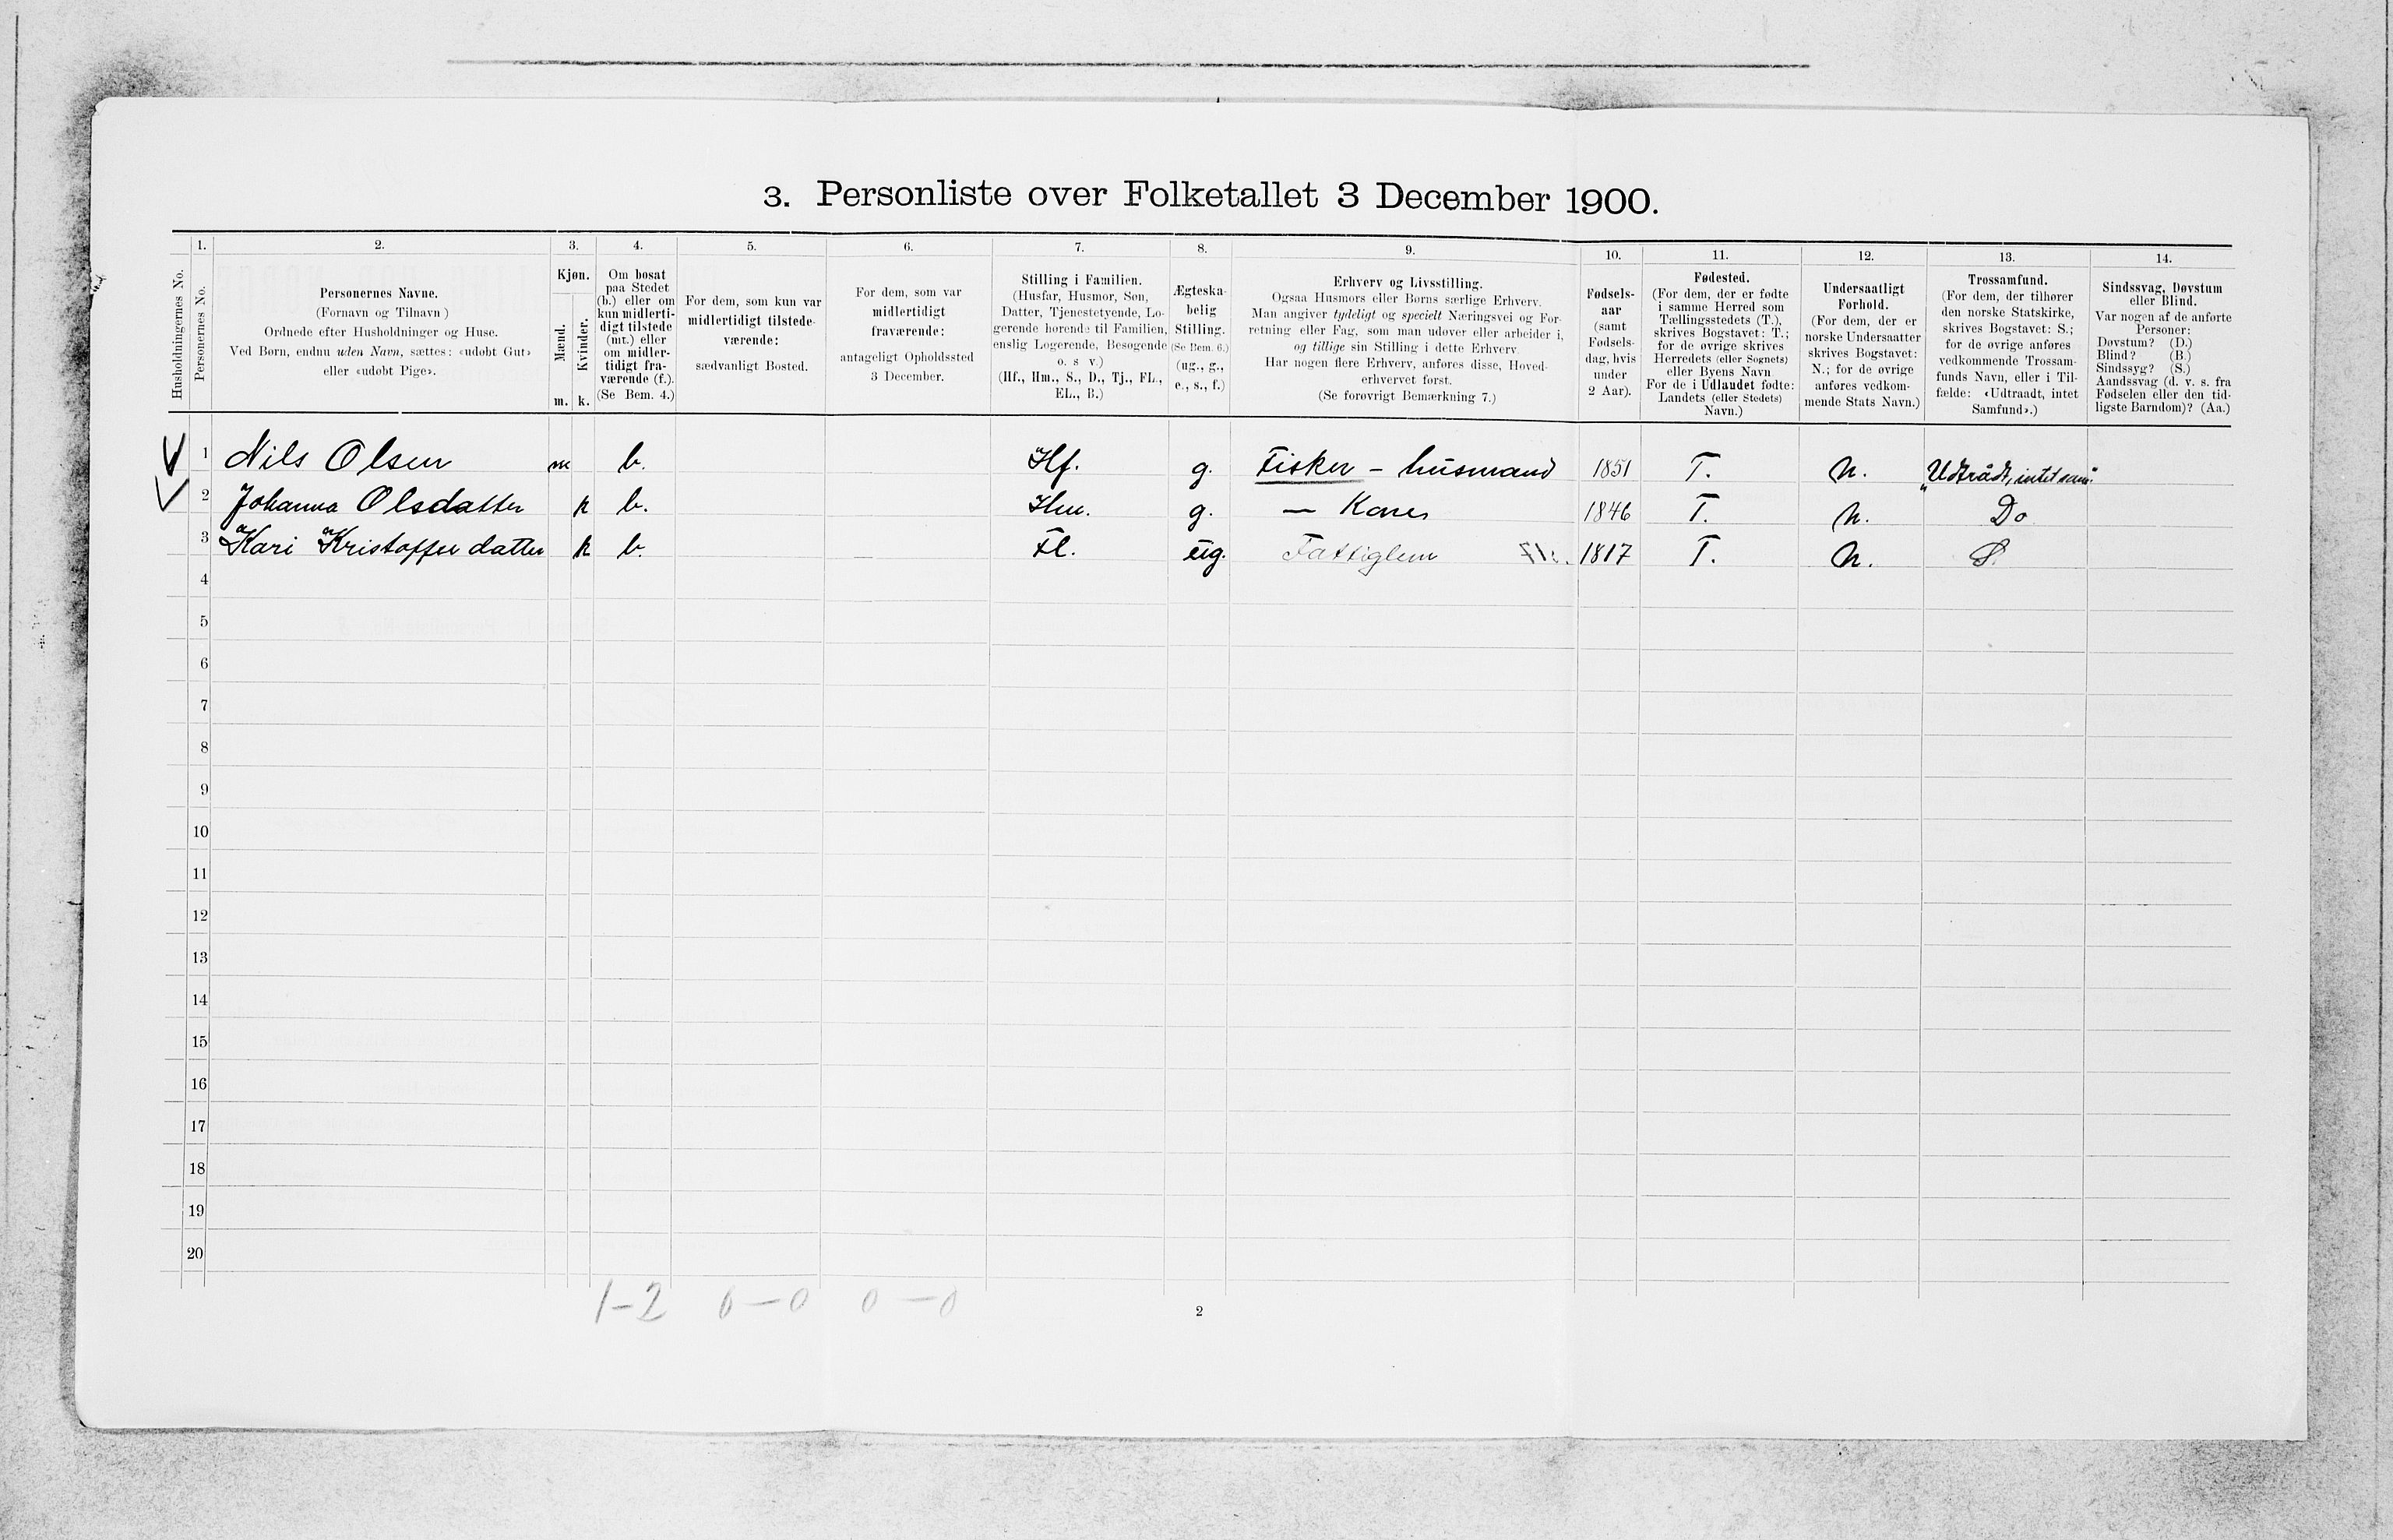 3. Personliste over Folketallet 3 December 1900.
1. 2. 3. 4. 5. 6. 7. 8. 9. 10. 11. 12. 13. 14.
Husholdningernes No.
Personernes No.
Personernes Navne.
(Fornavn og Tilnavn)
Ordnede efter Husholdninger og Huse.
Ved Børn, endnu uden Navn, sættes: «udøbt Gut»
eller «udøbt Pige».
Kjøn.
Mænd.
Kvinder.
m. k.
Om bosat
paa Stedet
(b.) eller om
kun midlerti-
digt tilstede
(mt.) eller
om midler-
tidigt fra-
værende (f.).
(Se Bem. 4.)
For dem, som kun var
midlertidigt tilstede-
værende:
sædvanligt Bosted.
For dem, som var
midlertidigt
fraværende:
antageligt Opholdssted
3 December.
Stilling i Familien.
(Husfar, Husmor, Søn,
Datter, Tjenestetyende, Lo-
gerende hørende til Familien,
enslig Logerende, Besøgende
o. s v.)
(Hf., Hm., S., D., Tj., FL.,
EL., B.)
Ægteska-
belig
Stilling.
(Se Bem. 6.)
(ug., g.,
e., s., f.)
Erhverv og Livsstilling.
Ogsaa Husmors eller Børns særlige Erhverv.
Man angiver tydeligt og specielt Næringsvei og For-
retning eller Fag, som man udøver eller arbeider i,
og tillige sin Stilling i dette Erhverv.
Har nogen flere Erhverv, anføres disse, Hoved-
erhvervet først.
(Se forøvrigt Bemærkning 7.)
Fødsels-
aar
(samt
Fødsels-
dag, hvis
under
2 Aar).
Fødested.
(For dem, der er fødte
i samme Herred som
Tællingsstedets (T.),
skrives Bogstavet: T.;
for de øvrige skrives
Herredets (eller Sognets)
eller Byens Navn.
For de i Udlandet fødte:
Landets (eller Stedets)
Navn.)
Undersaatligt
Forhold.
(For dem, der er
norske Undersaatter
skrives Bogstavet:
N.; for de øvrige
anføres vedkom-
mende Stats Navn.)
Trossamfund.
(For dem, der tilhører
den norske Statskirke,
skrives Bogstavet: S.;
for de øvrige anføres
vedkommende Trossam-
funds Navn, eller i Til-
fælde: «Udtraadt, intet
Samfund».)
Sindssvag, Døvstum
eller Blind.
Var nogen af de anførte
Personer:
Døvstum? (D.)
Blind? (B.)
Sindssyg? (S.)
Aandssvag (d. v. s. fra
Fødselen eller den tid-
ligste Barndom)? (Aa.)
1 Nils Olsen m b. Hf. g. Fisker - husmand 1851 T. N. "Udtrådt, intet sam."
2 Johanna Olsdatter k b. Hm. g. — Kone 1846 T. N. Do
3 Kari Kristoffer datter k b. Fl. ug. Fattiglem 1817 T. N. S
4
5
6
7
8
9
10
11
12
13
14
15
16
17
18
19
20
1-2 0-0 0-0
2